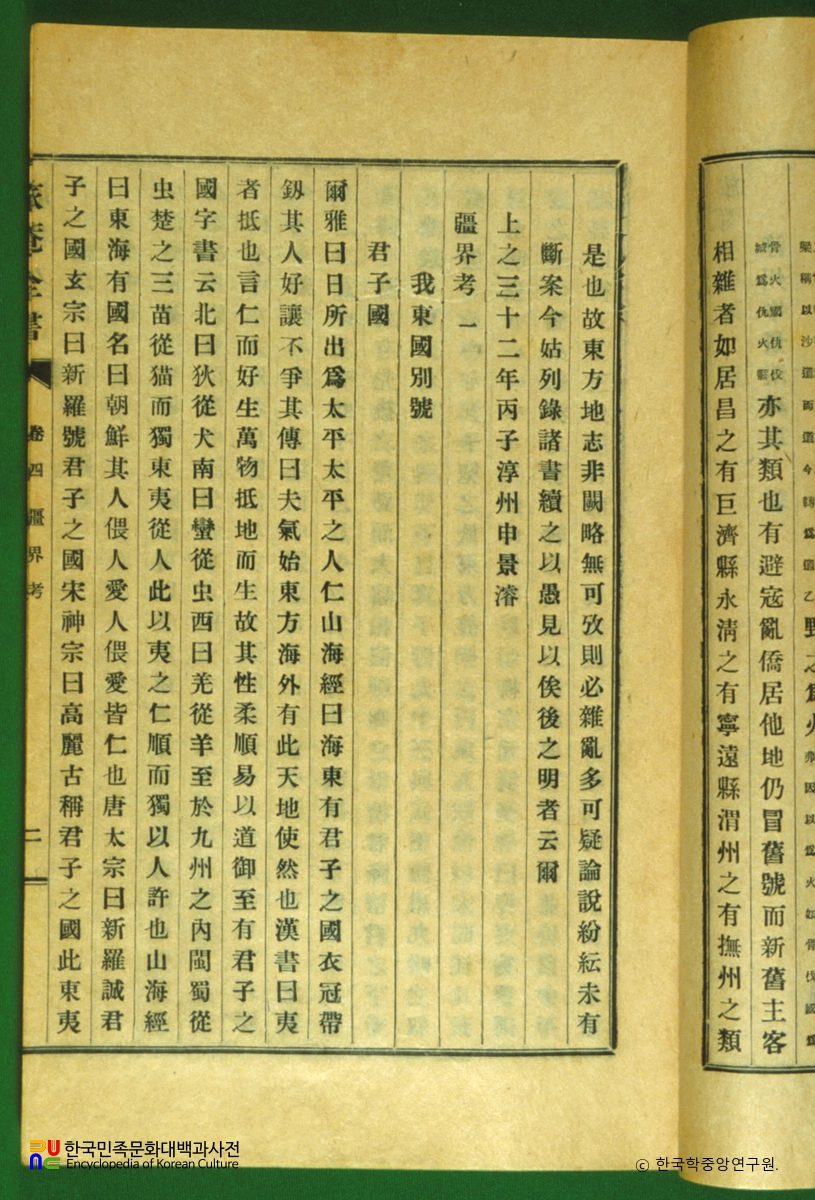 相雜者如居昌之有巨濟縣永淸之有寧遠縣渭州之有撫州之類
是也故東方地志非闕略無可攷則必雜亂多可疑論說紛紜未有
斷案今姑列錄諸書續之以愚見以俟後之明者云爾
上之三十二年丙子淳州申景濬
疆界考一
我東國別號
君子國
爾雅曰日所出爲太平太平之人仁山海經曰海東有君子之國衣冠帶
釼其人好讓不爭其傳曰夫氣始東方海外有此天地使然也漢書曰夷
者抵也言仁而好生萬物抵地而生故其性柔順易以道御至有君子之
國字書云北曰狄從犬南曰蠻從虫西曰羌從羊至於九州之內閩蜀從
虫楚之三苗從猫而獨東夷從人此以夷之仁順而獨以人許也山海經
曰東海有國名曰朝鮮其人偎人愛人偎愛皆仁也唐太宗曰新羅誠君
子之國玄宗曰新羅號君子之國宋神宗曰高麗古稱君子之國此東夷
菴全書 卷四 疆界考 二
亦其類也有避寇亂僑居他地仍冒舊號而新舊主客
한국민족문화대백과사전
Encyclopedia of Korean Culture
© 한국학중앙연구원.